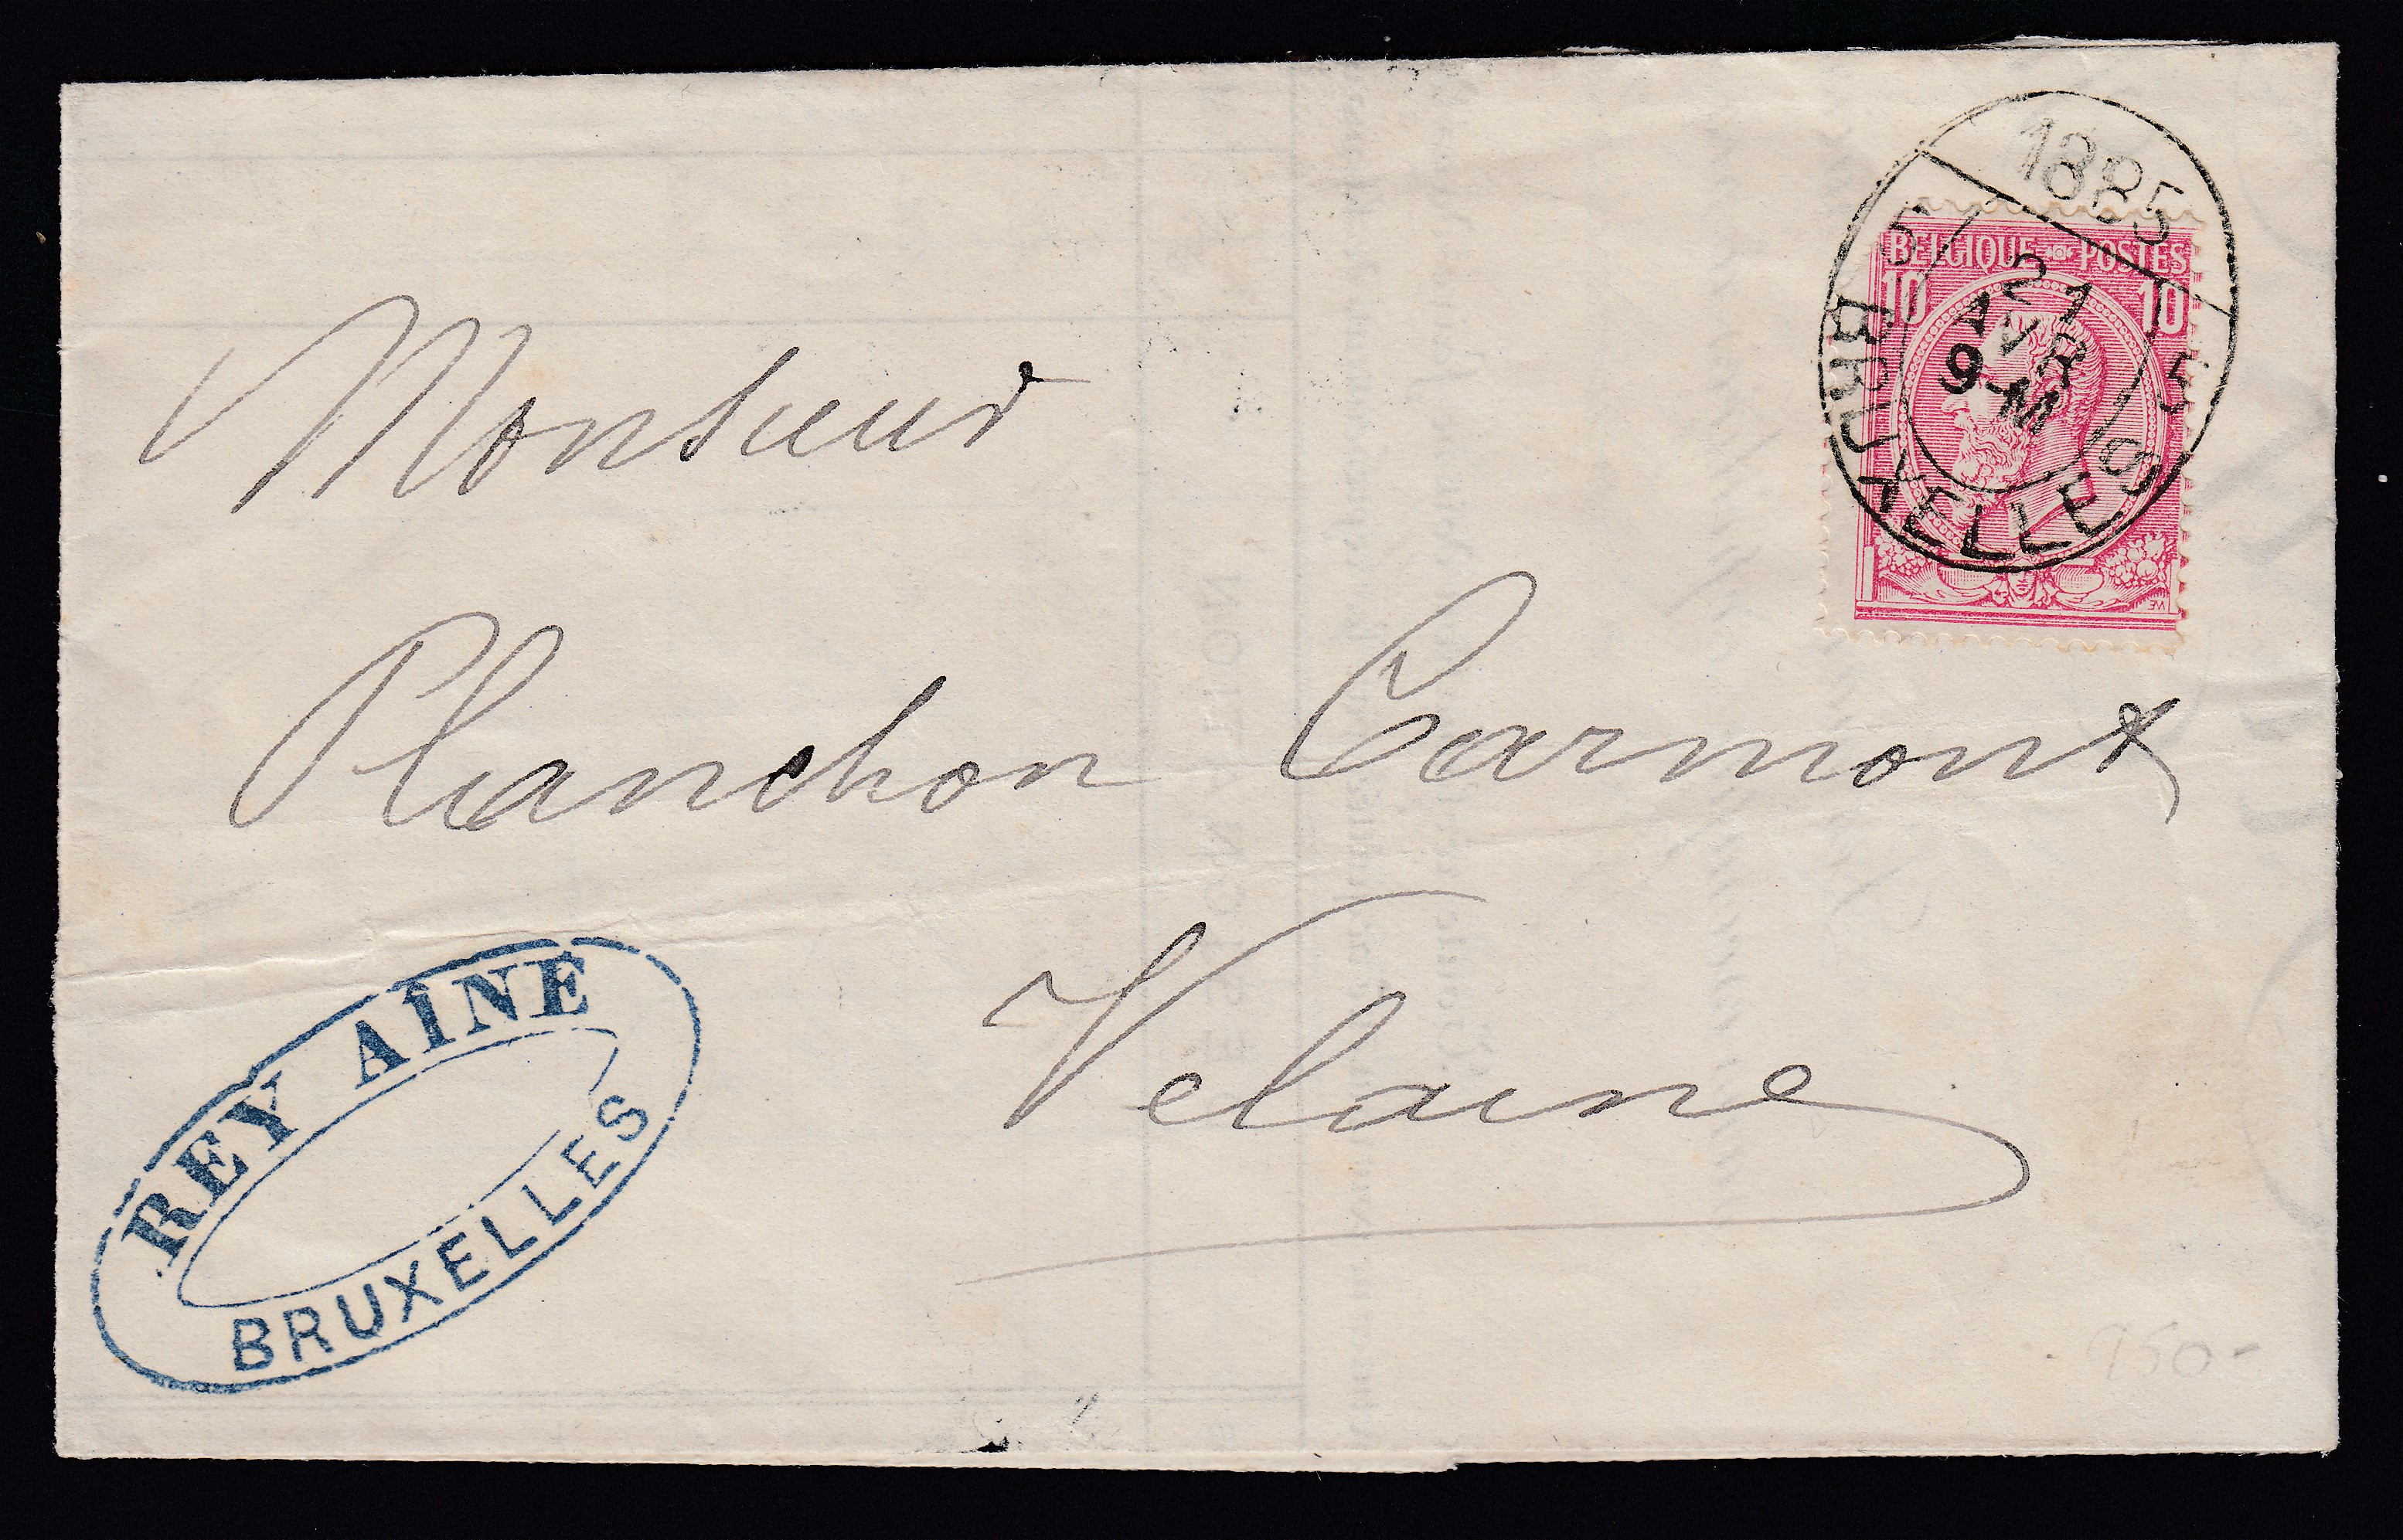 1885
5 5
BRUXELLES
21
AVR
9-M
BELGIQUE POSTES
10 10
Monsieur
Planchon Carmont
Velaine
REY AÎNÉ
BRUXELLES
950-